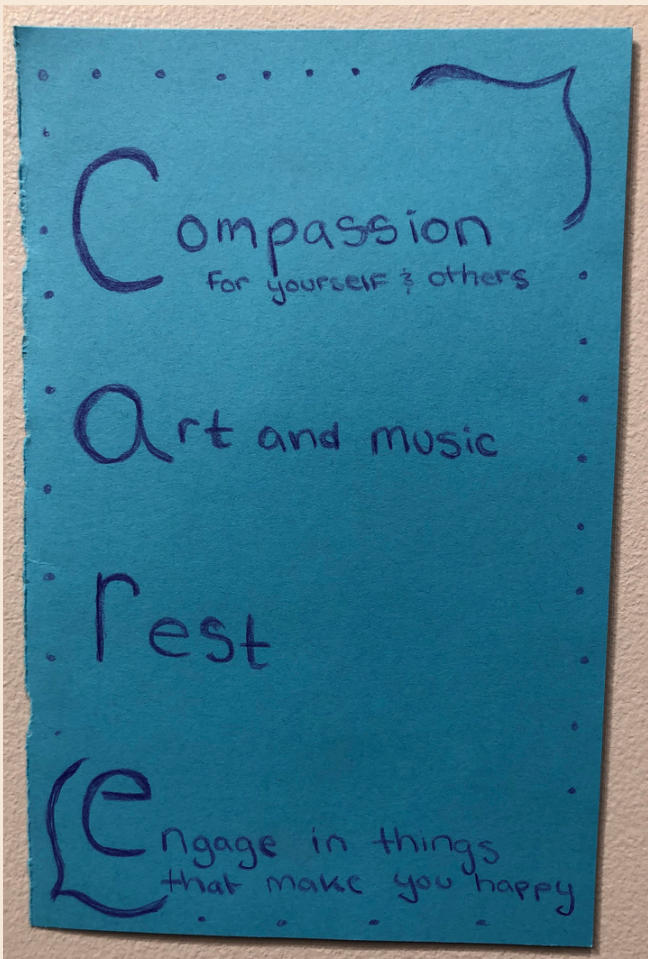 Compassion
for yourself & others
art and music
rest
engage in things
that make you happy